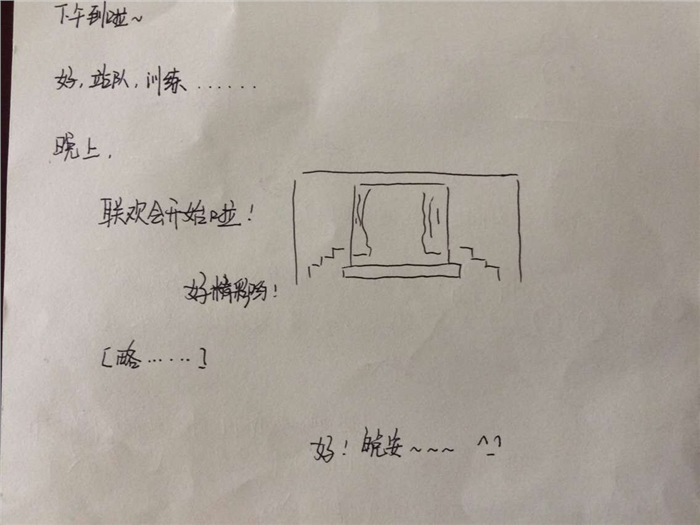 下午到啦~
好,站队,训练......
晚上,
联欢会开始啦!
好精彩哟!
[略......]
好!晚安~~~ ^_^